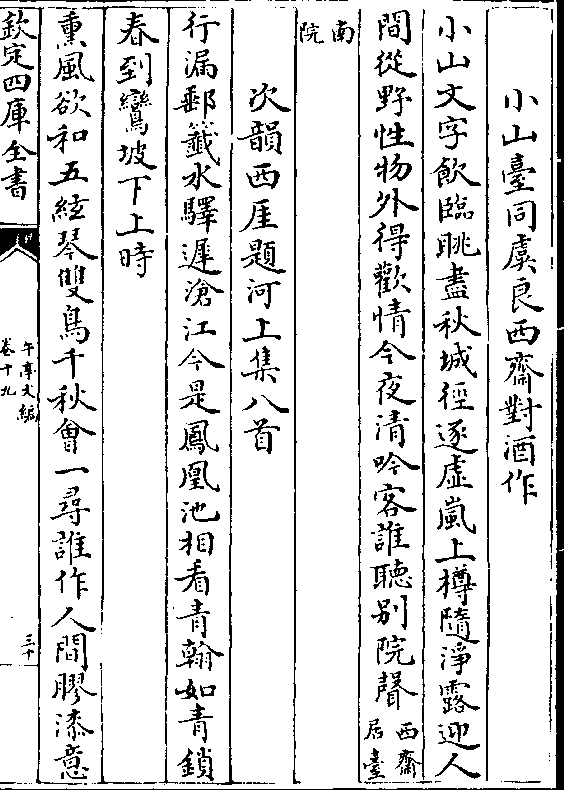 小山臺同虞良西齋對酒作
小山文字飲臨眺盡秋城徑逐虛嵐上樽隨淨露迎人
間從野性物外得歡情今夜清吟客誰聽别院聲西齋居臺
南院
次韻西厓題河上集八首
行漏郵籤水驛遲滄江今是鳳凰池相看青翰如青鎖
春到鸞坡下上時
熏風欲和五絃琴雙鳥千秋會一尋誰作人間膠漆意
欽定四庫全書
午亭文編
卷十九
三十